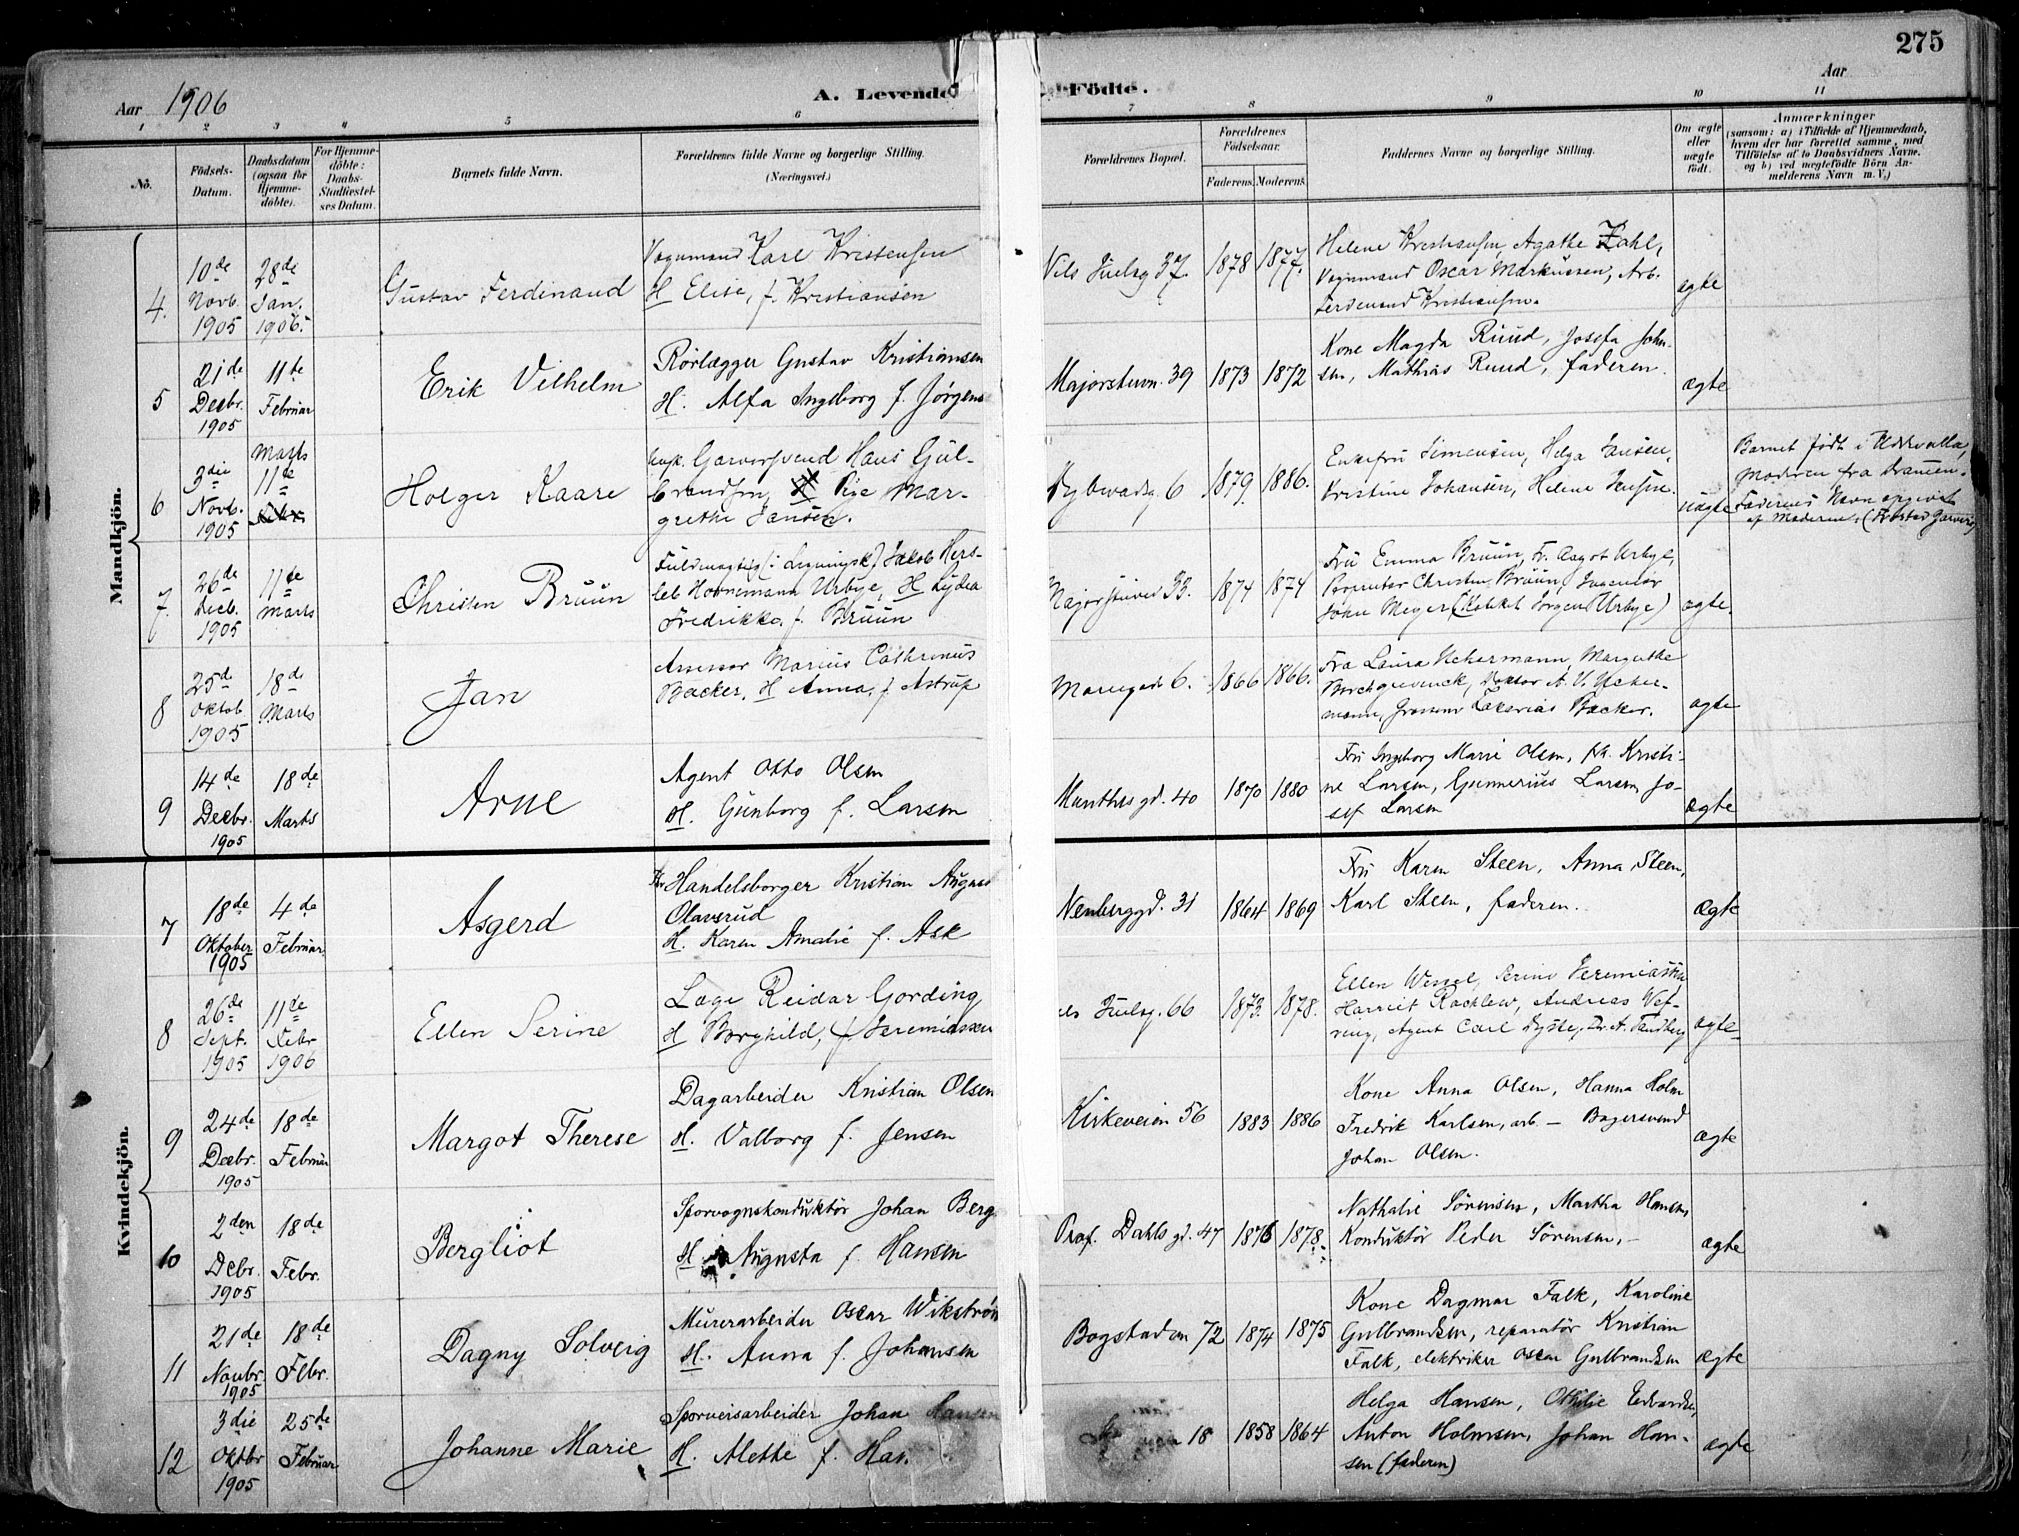 275
Aar 1906
A. Levende Födte.
Aar
1 2 3 4 5 6 7 8 9 10 11
No.
Födsels-Datum.
Daabsdatum (ogsaa for Hjemme-döbte).
For Hjemme-döbte: Daabs-Stadfæstel-ses Datum.
Barnets fulde Navn.
Forældrenes fulde Navne og borgerlige Stilling.
(Næringsvei.)
Forældrenes Bopæl.
Forældrenes Födselsaar.
Faderens. Moderens.
Faddernes Navne og borgerlige Stilling.
Om ægte eller uægte födt.
Anmærkninger
(saasom: a) i Tilfælde af Hjemmedaab,
hvem der har forrettet samme, med
Tilföielse af to Daabsvidners Navne.
og b) ved uegtefödte Börn An-
melderens Navn m. V.)
Mandkjön.
4. 10de Novb. 1905 28de Jan. 1906.
Gustav Ferdinand
Vognmand Karl Kristensen
H Elise, f. Kristiansen
Nils Juelsg 37. 1878 1877.
Helene Kristiansen, Agathe Zahl,
Vognmand Oscar Markussen, Arb.
Ferdinand Kristiansen.
ægte
5 21de Decbr. 1905 11te Februar
Erik Vilhelm
Rörlægger Gustav Kristiansen
H. Alfa Ingeborg f. Jørgens
Majorstuvn. 39 1873 1872
Kone Magda Ruud, Josefa John-
sen, Mathias Ruud, faderen.
ægte
6 3die Novb. 1905 Marts 11te
Holger Kaare
Garversvend Hans Gul-
brandsen, Pige Mar-
grethe Jansen.
Dybwadsg. 6 1879. 1886.
Enkefru Simensen, Helga Jansen,
Kristine Johansen, Helene Jensen.
uægte
Barnet født i Uddevalla,
Moderen fra Dramen.
Faderens Navn opgivet
af Moderen.
7. 26de Decb. 1905 11te Marts
Christen Bruun
Fuldmægtig (i Ligningsk.) Jakob Hers-
leb Hornemann Urbye, H Lydia
Fredrikke, f. Bruun
Majorstuvei 33. 1874 1874
Fru Emma Bruun, Fr. Aagot Urbye,
Christen Bruun, Ingeniør
John Meyer, (Kabkl Jørgen Urbye)
ægte.
8 25de Oktob 1905 18de Marts
Jan
Assessor Marius Cathrinus
Backer. H Anna, f. Astrup
Mariegade 6. 1866 1866.
Fru Laura Uchermann, Margrethe
Borchgrevinck, Doktor A. V. Ucher-
mann, Grosserer Zakarias Backer.
ægte
9 14de Decbr. 1905 18de Marts
Arne
Agent Otto Olsen
H. Gunborg f. Larsen
Munthes gd. 40 1870 1880
Fru Ingeborg Marie Olsen, frk. Kristi-
ne Larsen, Gunnerius Larsen, Jo-
sef Larsen
ægte
Kvindekjön.
7 18de Oktober 1905 4de Februar.
Asgerd
Handelsborger Kristian August
Olavsrud
H. Karen Amalie f. Ask
Neuberggd. 31 1864 1869
Fru Karen Steen, Anna Steen,
Karl Steen, faderen.
ægte
8 26de Sept. 1905 11de Febr 1906
Ellen Serine
Læge Reidar Gording,
H Borghild, f Jeremiassen
Juelsg. 66 1873. 1878.
Ellen Wessel, Serine Jeremiassen,
Harriet Rachlew, Andreas Wef-
ring, Agent Carl Dyste, Dr. A. Sandberg
ægte
9 24de Decbr. 1905 18de Februar
Margot Therese
Dagarbeider Kristian Olsen
H. Valborg f. Jensen
Kirkeveien 56 1883 1886
Kone Anna Olsen, Hanna Holm
Fredrik Karlsen, arb. – Bagersvend
Johan Olsen.
ægte
10 2den Debr. 1905 18de Febr.
Bergliot
Sporvognskonduktør Johan Berg
H. Augusta f. Hansen
Prof. Dahls gd. 47 1876 1878
Nathalie Sørensen, Martha Hansen,
Konduktør Peder Sørensen, –
ægte
11 21de Novbr. 1905 18de Febr.
Dagny Solveig
Murerarbeider Oscar Wikström
H. Anna f. Johansen
Bogstadvn 72 1874 1875
Kone Dagmar Falk, Karoline
Gulbrandsen, reparatør Kristian
Falk, elektriker Oscar Gulbrandsen
ægte
12 3die Oktbr 1905 25de Februar
Johanne Marie
Sporveisarbeider Johan Hansen
H. Alette f. Han.
18 1858 1864
Helga Hansen, Othilie Edvardsen,
Anton Holmsen, Johan Han-
sen (faderen)
ægte